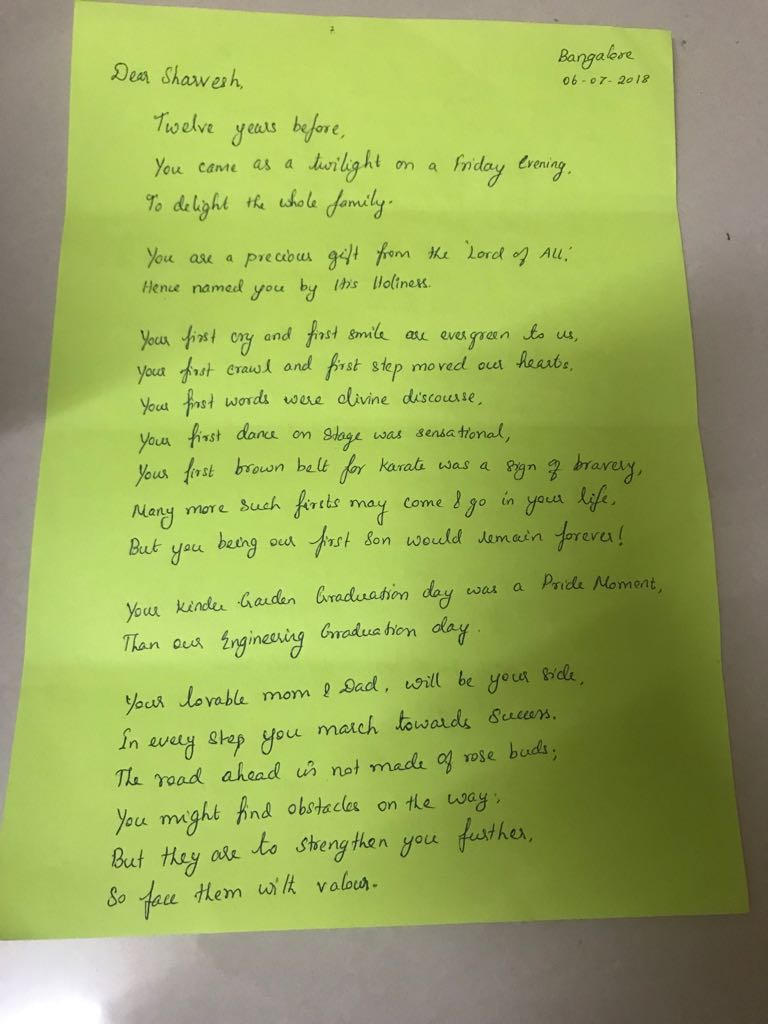 Bangalore
06-07-2018
Dear Sharvesh,
Twelve years before,
You came as a twilight on a Friday Evening,
To delight the whole family.
You are a precious gift from the 'Lord of All',
Hence named you by His Holiness.
Your first cry and first smile are evergreen to us,
Your first crawl and first step moved our hearts,
Your first words were divine discourse,
Your first dance on stage was sensational,
Your first brown belt for karate was a sign of bravery,
Many more such firsts may come & go in your life,
But you being our first son would remain forever!
Your Kinder Garden Graduation day was a Pride Moment,
Than our Engineering Graduation day.
Your lovable mom & Dad, will be your side,
In every step you march towards success.
The road ahead is not made of rose buds;
You might find obstacles on the way;
But they are to strengthen you further,
So face them with valour.